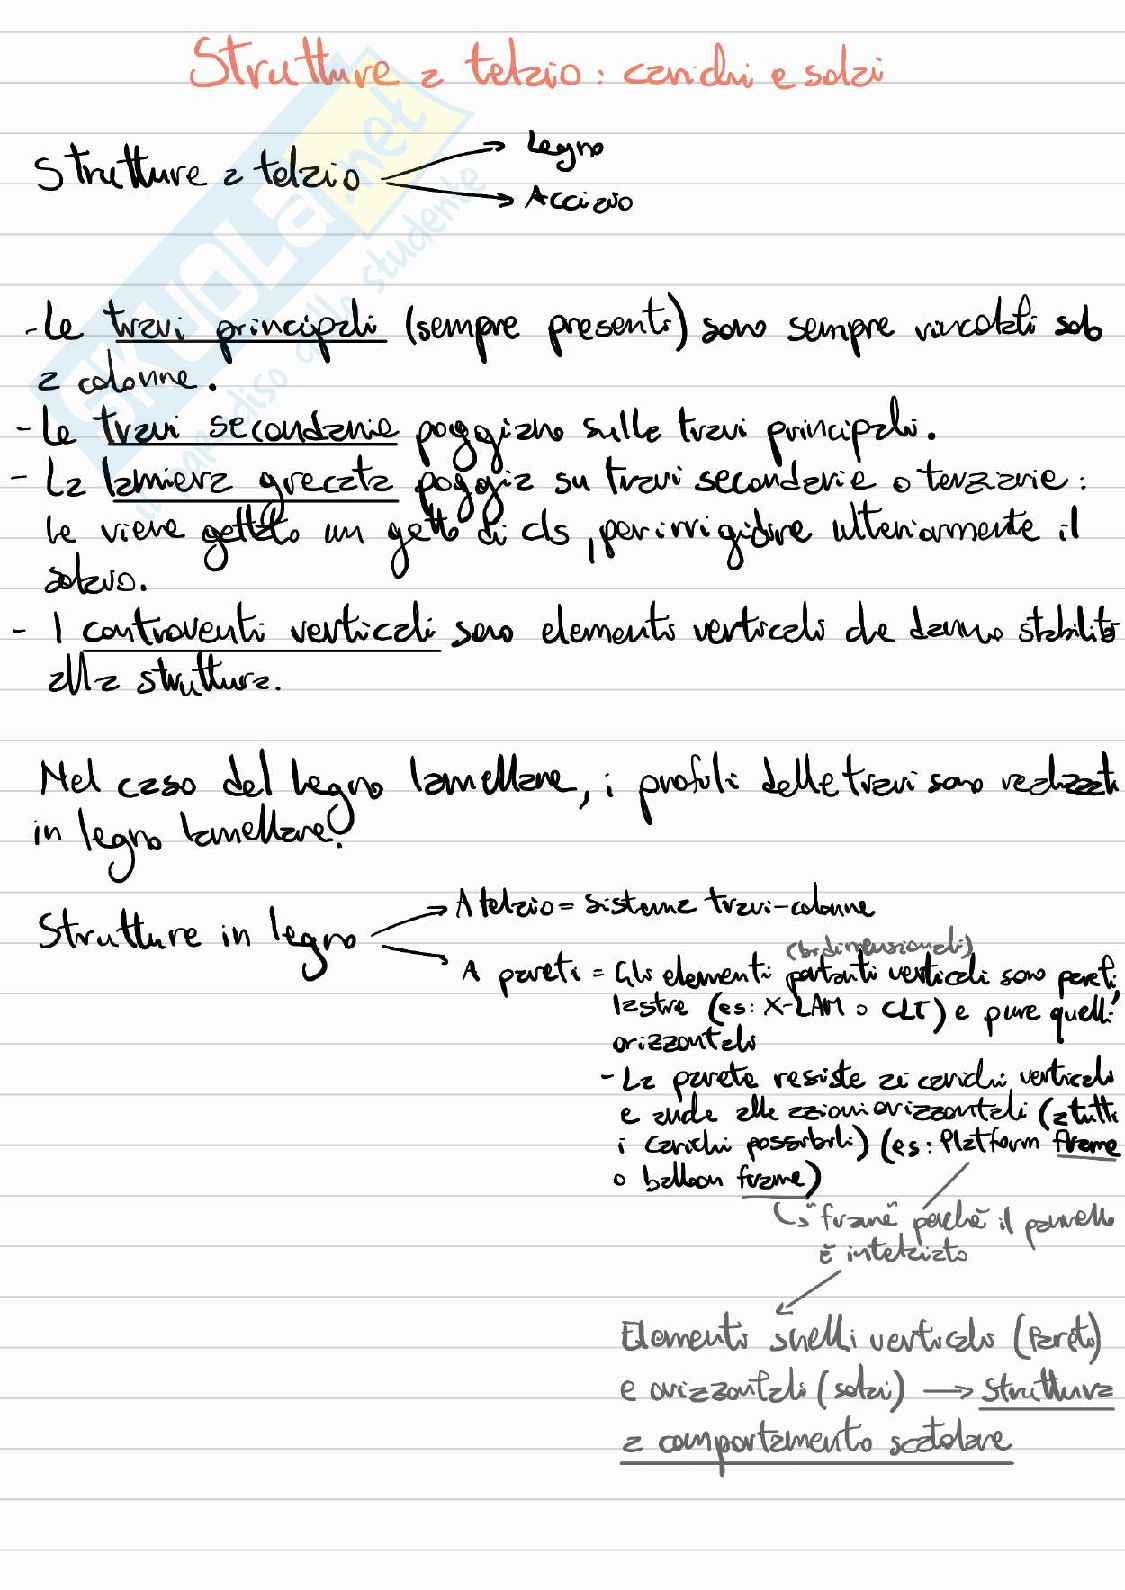 Strutture a telaio: carichi e solai
Strutture a telaio
Legno
Acciaio
- Le travi principali (sempre presenti) sono sempre vincolati solo
a colonne.
- Le travi secondarie poggiano sulle travi principali.
- La lamiera grecata poggia su travi secondarie o terziarie:
le viene gettato un getto di cls, per irrigidire ulteriormente il
solaio.
- I controventi verticali sono elementi verticali che danno stabilità
alla struttura.
Nel caso del legno lamellare, i profili delle travi sono realizzati
in legno lamellare.
Strutture in legno
A telaio = sistema travi-colonne
(bidimensionali)
A pareti = Gli elementi portanti verticali sono pareti,
lastre (es: X-LAM o CLT) e pure quelli
orizzontali
- La parete resiste ai carichi verticali
e anche alle azioni orizzontali (a tutti
i carichi possibili) (es: Platform frame
o balloon frame)
"frame" perchè il pannello
è intelaiato
Elementi snelli verticali (Pareti)
e orizzontali (solai) → Struttura
a comportamento scatolare
SKUOLA.net